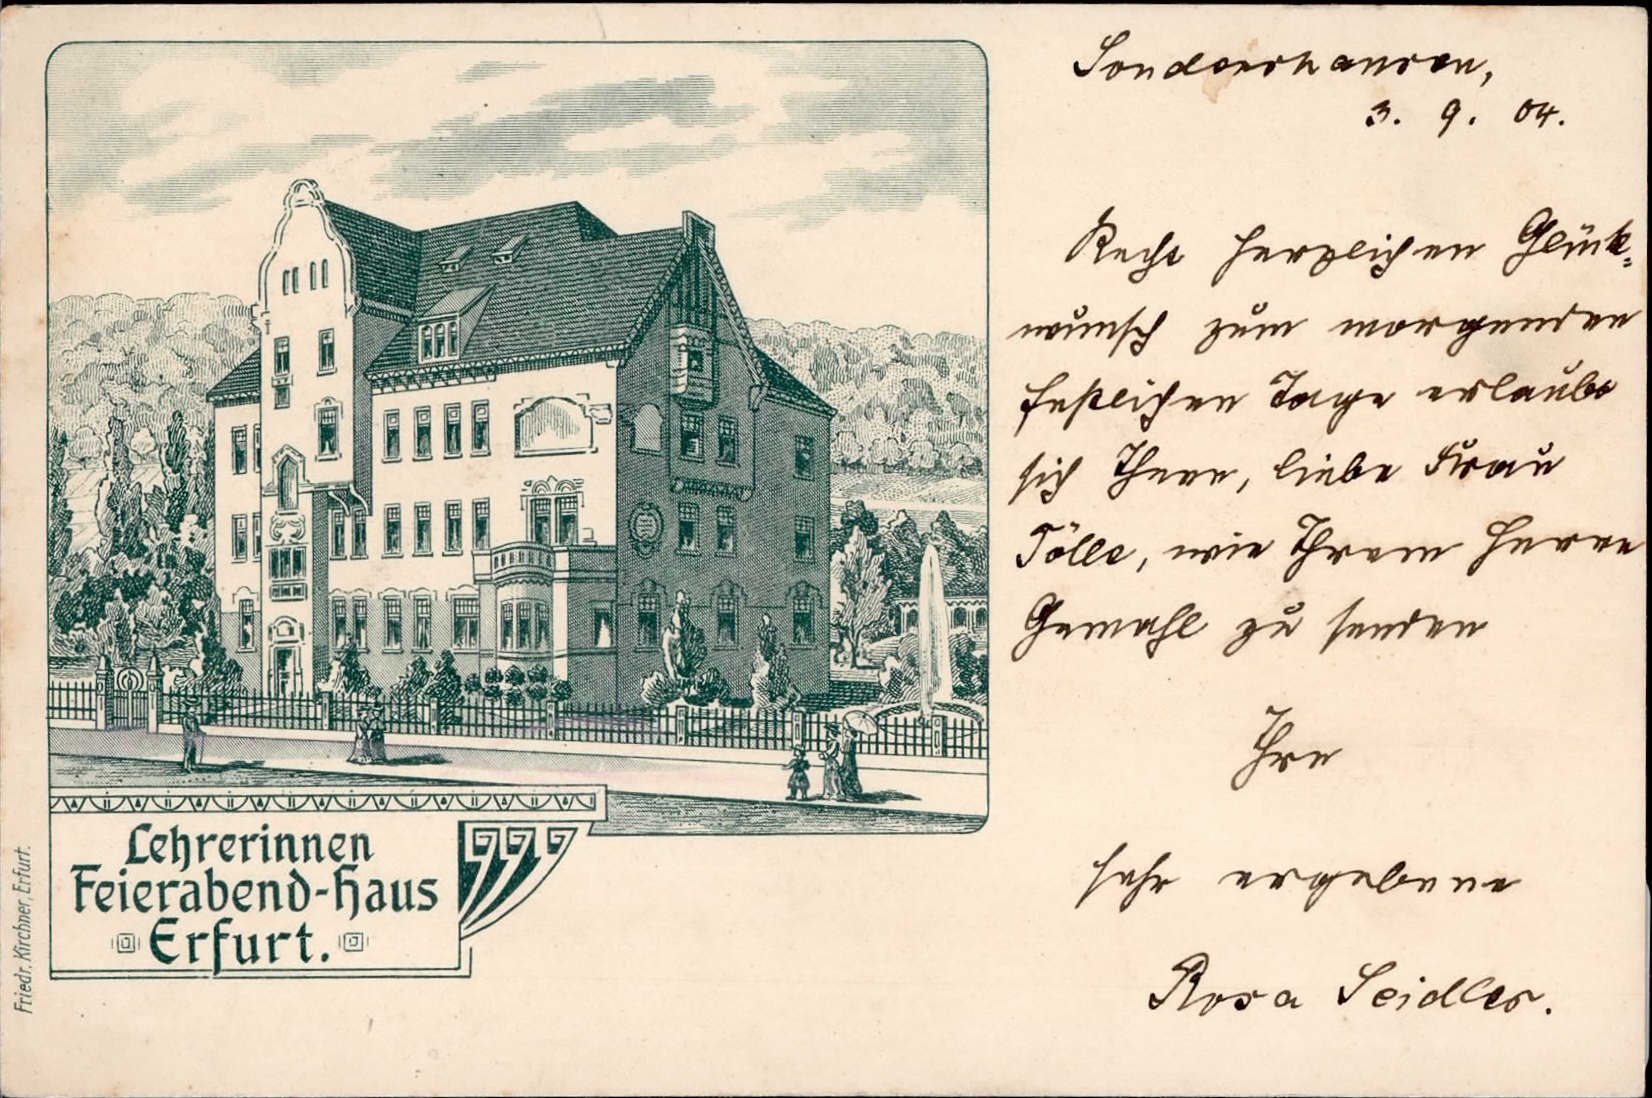 Sondershausen,
3. 9. 04.
Recht herzlichen Glück-
wunsch zum morgenden
festlichen Tage erlaubt
sich Ihnen, liebe Frau
Tölle, wie Ihrem Herrn
Gemahl zu senden
Ihre
sehr ergebene
Rosa Seidler.
Lehrerinnen
Feierabend-Haus
Erfurt.
Friedr. Kirchner, Erfurt.